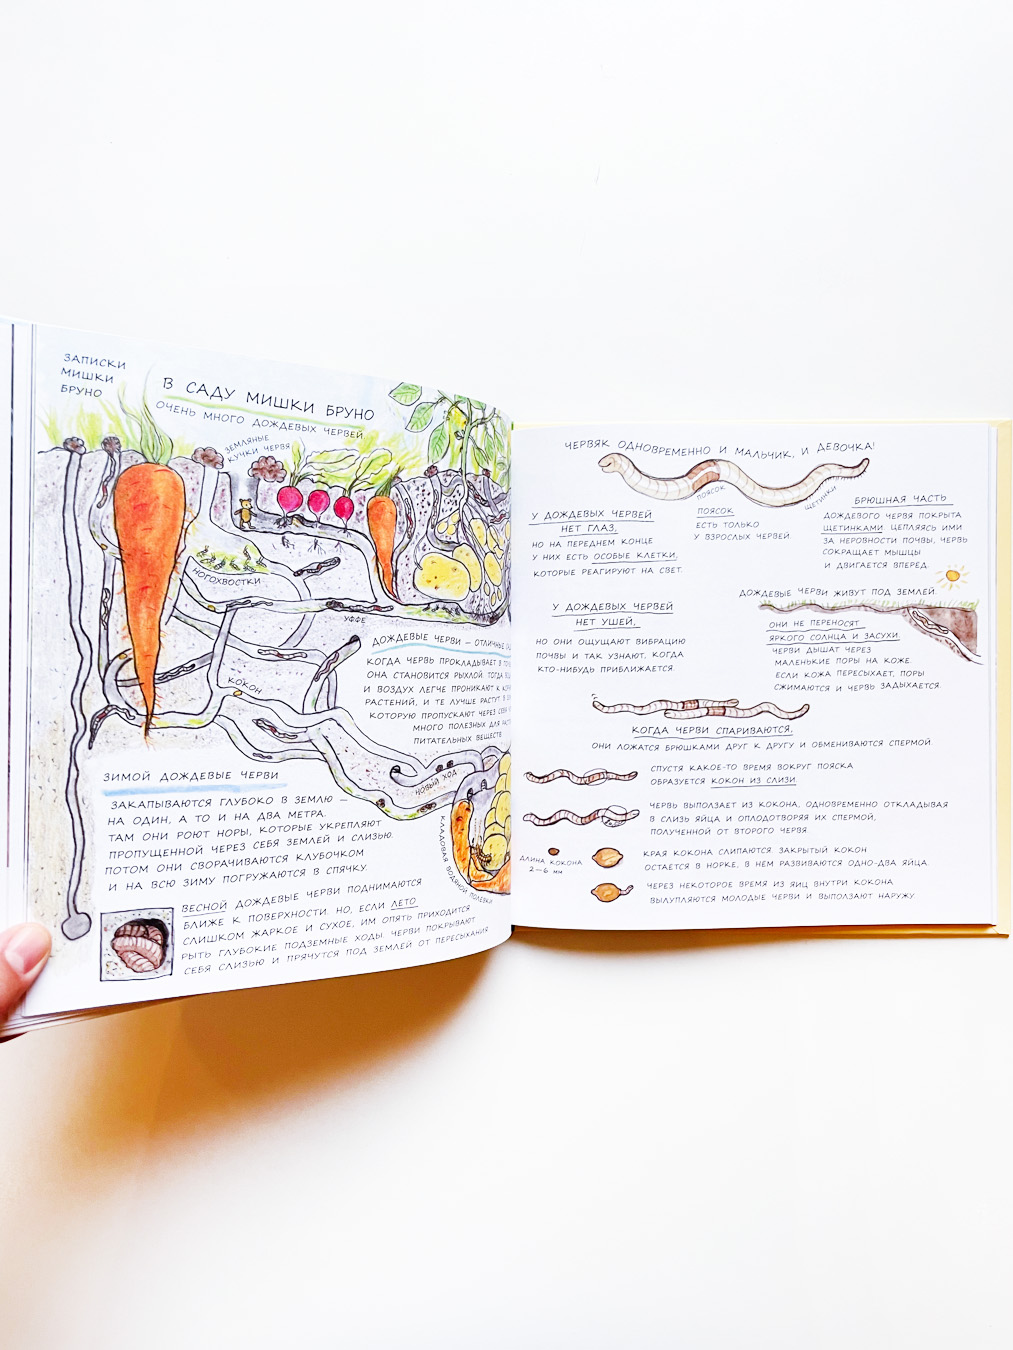 ЗАПИСКИ
МИШКИ
БРУНО
В САДУ МИШКИ БРУНО
ОЧЕНЬ МНОГО ДОЖДЕВЫХ ЧЕРВЕЙ
ЗЕМЛЯНЫЕ
КУЧКИ ЧЕРВЯ
НОГОХВОСТКИ
УФФЕ
КОКОН
ДОЖДЕВЫЕ ЧЕРВИ – ОТЛИЧНЫЕ
КОГДА ЧЕРВЬ ПРОКЛАДЫВАЕТ В
ОНА СТАНОВИТСЯ РЫХЛОЙ. ТОГДА
И ВОЗДУХ ЛЕГЧЕ ПРОНИКАЮТ К
РАСТЕНИЙ, И ТЕ ЛУЧШЕ РАСТУТ. В
КОТОРУЮ ПРОПУСКАЮТ ЧЕРЕЗ СЕБЯ
МНОГО ПОЛЕЗНЫХ ДЛЯ
ПИТАТЕЛЬНЫХ ВЕЩЕСТВ
НОВЫЙ ХОД
КЛАДОВАЯ ВОДЯНОЙ ПОЛЕВКИ
ЗИМОЙ ДОЖДЕВЫЕ ЧЕРВИ
ЗАКАПЫВАЮТСЯ ГЛУБОКО В ЗЕМЛЮ –
НА ОДИН, А ТО И НА ДВА МЕТРА.
ТАМ ОНИ РОЮТ НОРЫ, КОТОРЫЕ УКРЕПЛЯЮТ
ПРОПУЩЕННОЙ ЧЕРЕЗ СЕБЯ ЗЕМЛЕЙ И СЛИЗЬЮ.
ПОТОМ ОНИ СВОРАЧИВАЮТСЯ КЛУБОЧКОМ
И НА ВСЮ ЗИМУ ПОГРУЖАЮТСЯ В СПЯЧКУ.
ВЕСНОЙ ДОЖДЕВЫЕ ЧЕРВИ ПОДНИМАЮТСЯ
БЛИЖЕ К ПОВЕРХНОСТИ. НО, ЕСЛИ ЛЕТО
СЛИШКОМ ЖАРКОЕ И СУХОЕ, ИМ ОПЯТЬ ПРИХОДИТСЯ
РЫТЬ ГЛУБОКИЕ ПОДЗЕМНЫЕ ХОДЫ. ЧЕРВИ ПОКРЫВАЮТ
СЕБЯ СЛИЗЬЮ И ПРЯЧУТСЯ ПОД ЗЕМЛЕЙ ОТ ПЕРЕСЫХАНИЯ
ЧЕРВЯК ОДНОВРЕМЕННО И МАЛЬЧИК, И ДЕВОЧКА!
ПОЯСОК
ЩЕТИНКИ
У ДОЖДЕВЫХ ЧЕРВЕЙ
НЕТ ГЛАЗ,
НО НА ПЕРЕДНЕМ КОНЦЕ
У НИХ ЕСТЬ ОСОБЫЕ КЛЕТКИ,
КОТОРЫЕ РЕАГИРУЮТ НА СВЕТ.
ПОЯСОК
ЕСТЬ ТОЛЬКО
У ВЗРОСЛЫХ ЧЕРВЕЙ
БРЮШНАЯ ЧАСТЬ
ДОЖДЕВОГО ЧЕРВЯ ПОКРЫТА
ЩЕТИНКАМИ. ЦЕПЛЯЯСЬ ИМИ
ЗА НЕРОВНОСТИ ПОЧВЫ, ЧЕРВЬ
СОКРАЩАЕТ МЫШЦЫ
И ДВИГАЕТСЯ ВПЕРЕД.
У ДОЖДЕВЫХ ЧЕРВЕЙ
НЕТ УШЕЙ,
НО ОНИ ОЩУЩАЮТ ВИБРАЦИЮ
ПОЧВЫ И ТАК УЗНАЮТ, КОГДА
КТО-НИБУДЬ ПРИБЛИЖАЕТСЯ.
ДОЖДЕВЫЕ ЧЕРВИ ЖИВУТ ПОД ЗЕМЛЕЙ.
ОНИ НЕ ПЕРЕНОСЯТ
ЯРКОГО СОЛНЦА И ЗАСУХИ.
ЧЕРВИ ДЫШАТ ЧЕРЕЗ
МАЛЕНЬКИЕ ПОРЫ НА КОЖЕ.
ЕСЛИ КОЖА ПЕРЕСЫХАЕТ, ПОРЫ
СЖИМАЮТСЯ И ЧЕРВЬ ЗАДЫХАЕТСЯ.
КОГДА ЧЕРВИ СПАРИВАЮТСЯ,
ОНИ ЛОЖАТСЯ БРЮШКАМИ ДРУГ К ДРУГУ И ОБМЕНИВАЮТСЯ СПЕРМОЙ.
СПУСТЯ КАКОЕ-ТО ВРЕМЯ ВОКРУГ ПОЯСКА
ОБРАЗУЕТСЯ КОКОН ИЗ СЛИЗИ.
ЧЕРВЬ ВЫПОЛЗАЕТ ИЗ КОКОНА, ОДНОВРЕМЕННО ОТКЛАДЫВАЯ
В СЛИЗЬ ЯЙЦА И ОПЛОДОТВОРЯЯ ИХ СПЕРМОЙ,
ПОЛУЧЕННОЙ ОТ ВТОРОГО ЧЕРВЯ.
ДЛИНА КОКОНА
2–6 ММ
КРАЯ КОКОНА СЛИПАЮТСЯ. ЗАКРЫТЫЙ КОКОН
ОСТАЕТСЯ В НОРКЕ, В НЕМ РАЗВИВАЮТСЯ ОДНО-ДВА ЯЙЦА.
ЧЕРЕЗ НЕКОТОРОЕ ВРЕМЯ ИЗ ЯИЦ ВНУТРИ КОКОНА
ВЫЛУПЛЯЮТСЯ МОЛОДЫЕ ЧЕРВИ И ВЫПОЛЗАЮТ НАРУЖУ